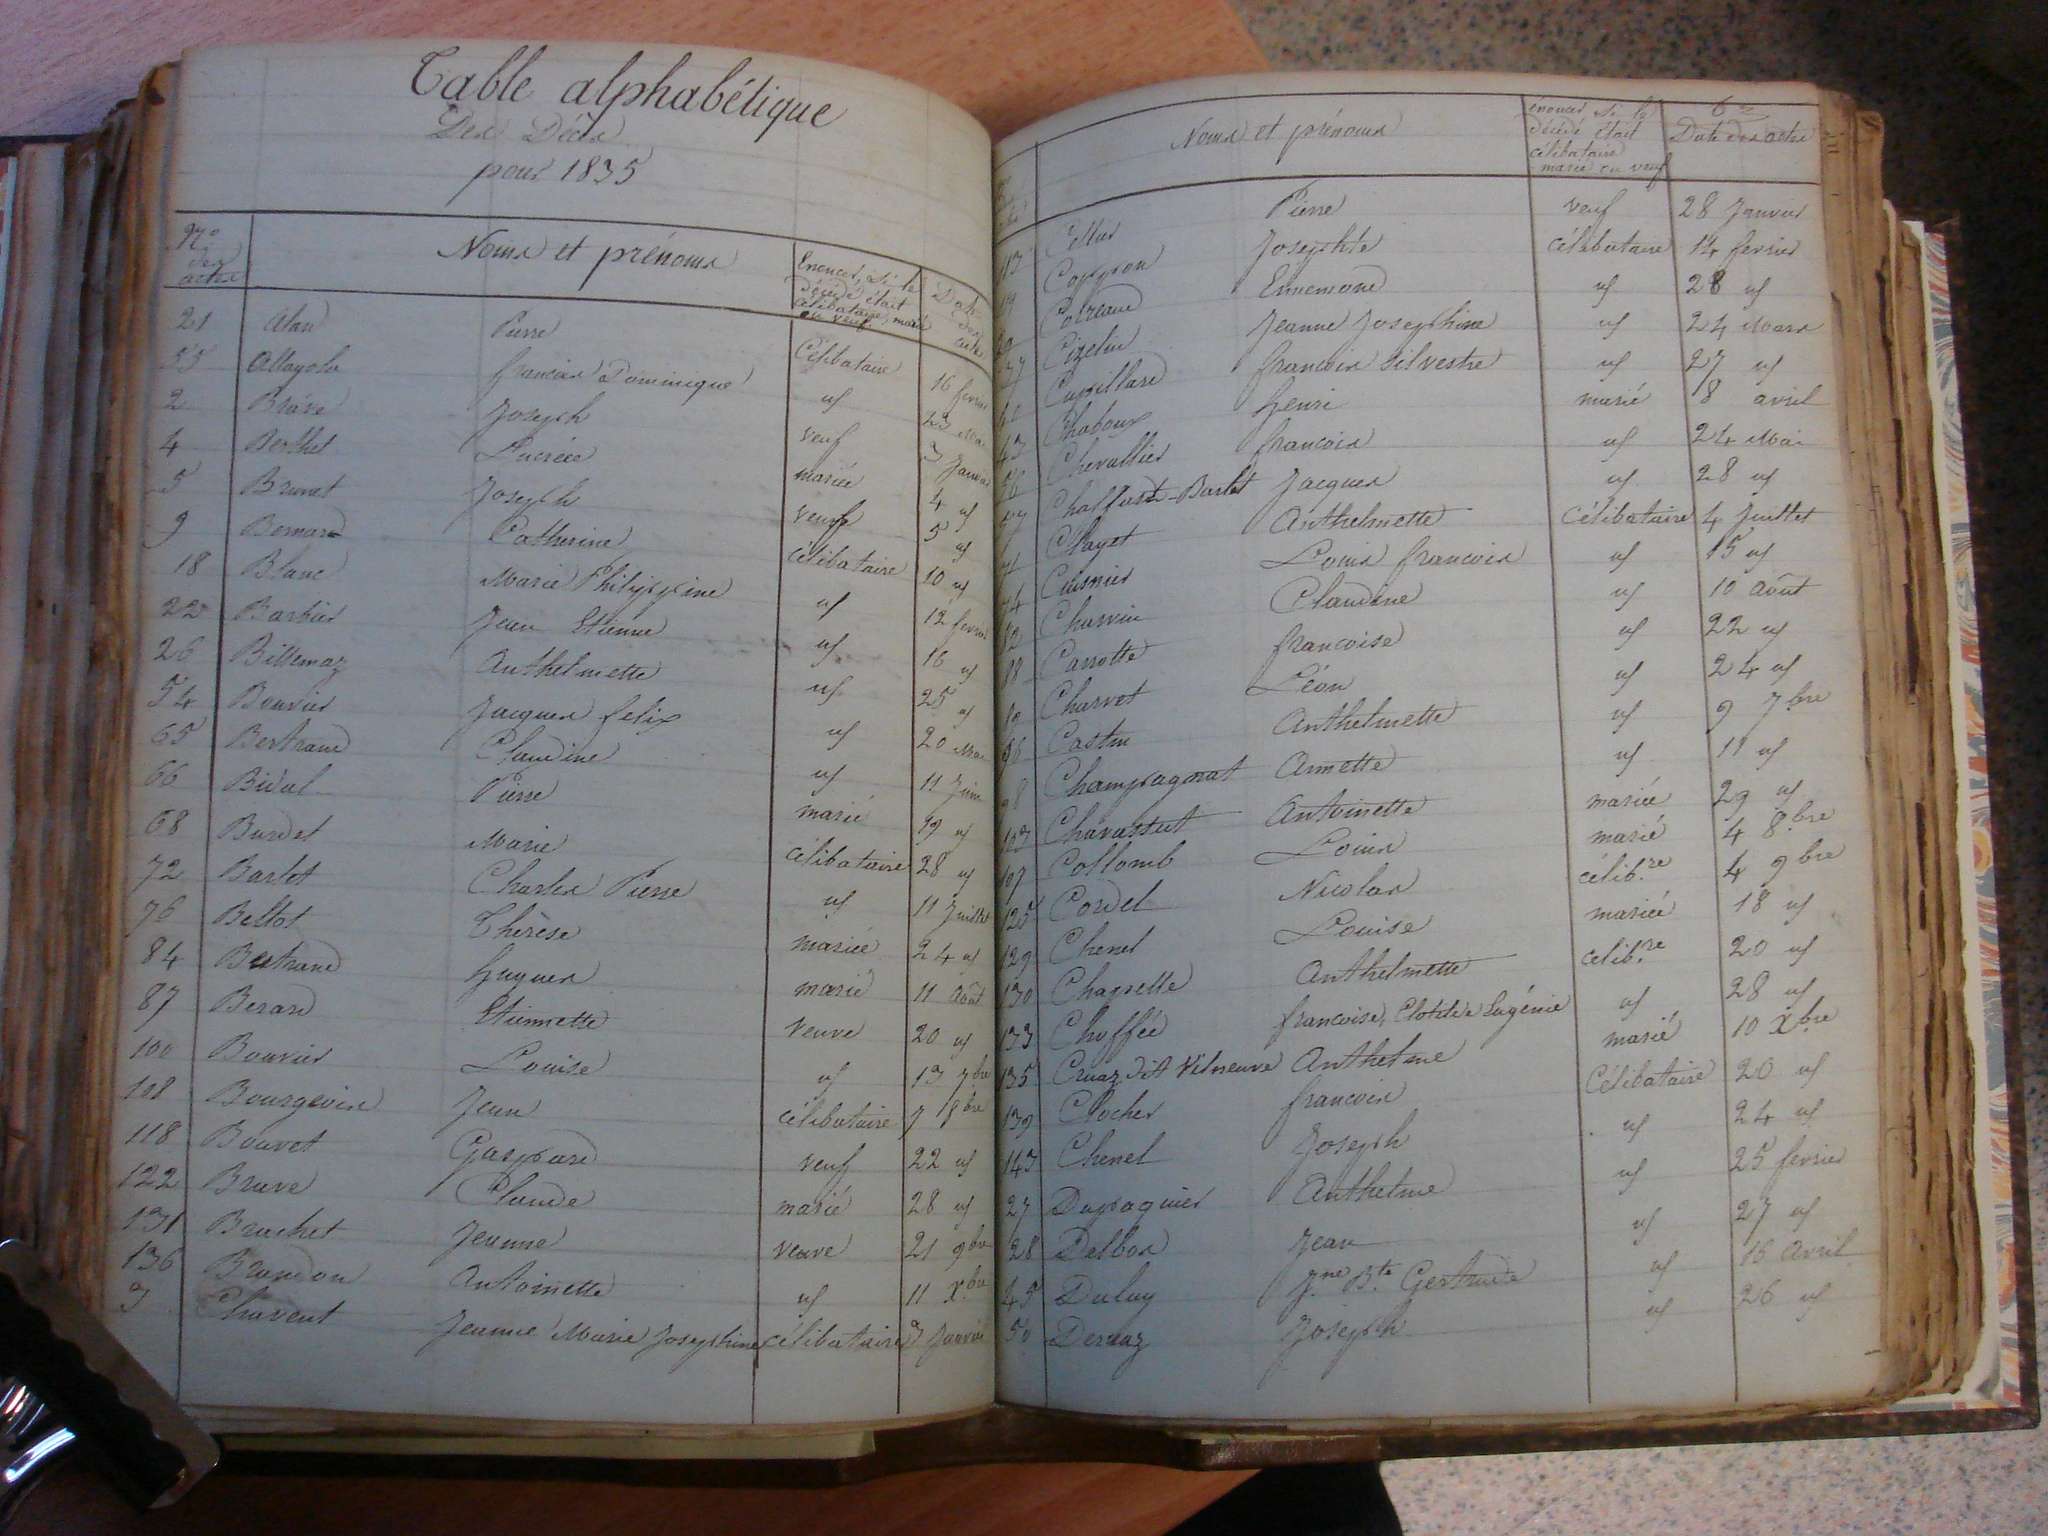 Table alphabétique
Des Décès
pour 1835
Nos des actes Noms et prénoms Enoncer, si le décédé était célibataire, marié ou veuf. Date des actes
21 Alan Pierre Célibataire 16 fevrier
55 Allagole francois Dominique id 23 Mai
2 Brave Joseph veuf 3 Janvier
4 Berthet Lucréce mariée 4 id
5 Brunet Joseph veuf 5 id
9 Bernard Catherine célibataire 10 id
18 Blanc Marie Philippine id 12 fevrier
22 Barbier Jean Etienne id 16 id
26 Billemaz Anthelmette id 25 id
54 Bouvier Jacques felix id 20 Mai
65 Bertrand Claudine id 11 Juin
66 Bidal Pierre marié 19 id
68 Burdet Marie célibataire 28 id
72 Barlet Charles Pierre id 11 Juillet
76 Bellot Thérèse mariée 24 id
84 Bertrand hugues marié 11 Août
87 Berard Etiennette veuve 20 id
100 Bouvier Louise id 13 7bre
108 Bourgeois Jean célibataire 7 8bre
118 Bouvet Gaspard veuf 22 id
122 Brave Claude marié 28 id
131 Brachet Jeanne veuve 21 9bre
136 Brandon Antoinette id 11 Xbre
3 Chavent Jeanne Marie Josephine célibataire 3 Janvier
Noms et prénoms énoncer si le décédé était célibataire marié ou veuf Date des actes
13 Cellier Pierre veuf 28 Janvier
19 Coppron Josephte célibataire 14 fevrier
Coireaud Ennemond id 28 id
37 Cizelin Jeanne Josephine id 24 Mars
Cupillard francois silvestre id 27 id
43 Chaboux henri marié 8 avril
56 Chevallier francois id 24 Mai
57 Chaffard-Barlet Jacques id 28 id
71 Clayet Anthelmette célibataire 4 Juillet
74 Cuisnier Louis francois id 15 id
82 Charvin Claudine id 10 août
88 Carrotte francoise id 22 id
Charvet Léon id 24 id
96 Castin Anthelmette id 9 7bre
98 Champagnat Annette id 11 id
103 Chavassut Antoinette mariée 29 id
107 Collomb Louis marié 4 8bre
125 Cordel Nicolas célib.re 4 9bre
129 Chenel Louise mariée 18 id
130 Chapelle Anthelmette célib.re 20 id
133 Choffée francoise, Clotilde Eugénie id 28 id
135 Cruaz dit Vilneuve Anthelme marié 10 Xbre
139 Clocher francois Célibataire 20 id
143 Chenel Joseph id 24 id
27 Dupaquier Anthelme id 25 fevrier
28 Dalbos Jean id 27 id
45 Duluy Jne Bte Gertrude id 15 avril
50 Dernaz Joseph id 26 id